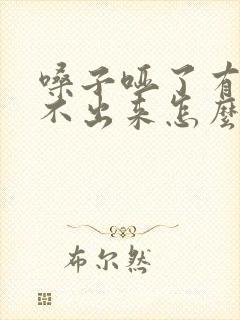 嗓子哑了有
不出来怎麽
布尔然